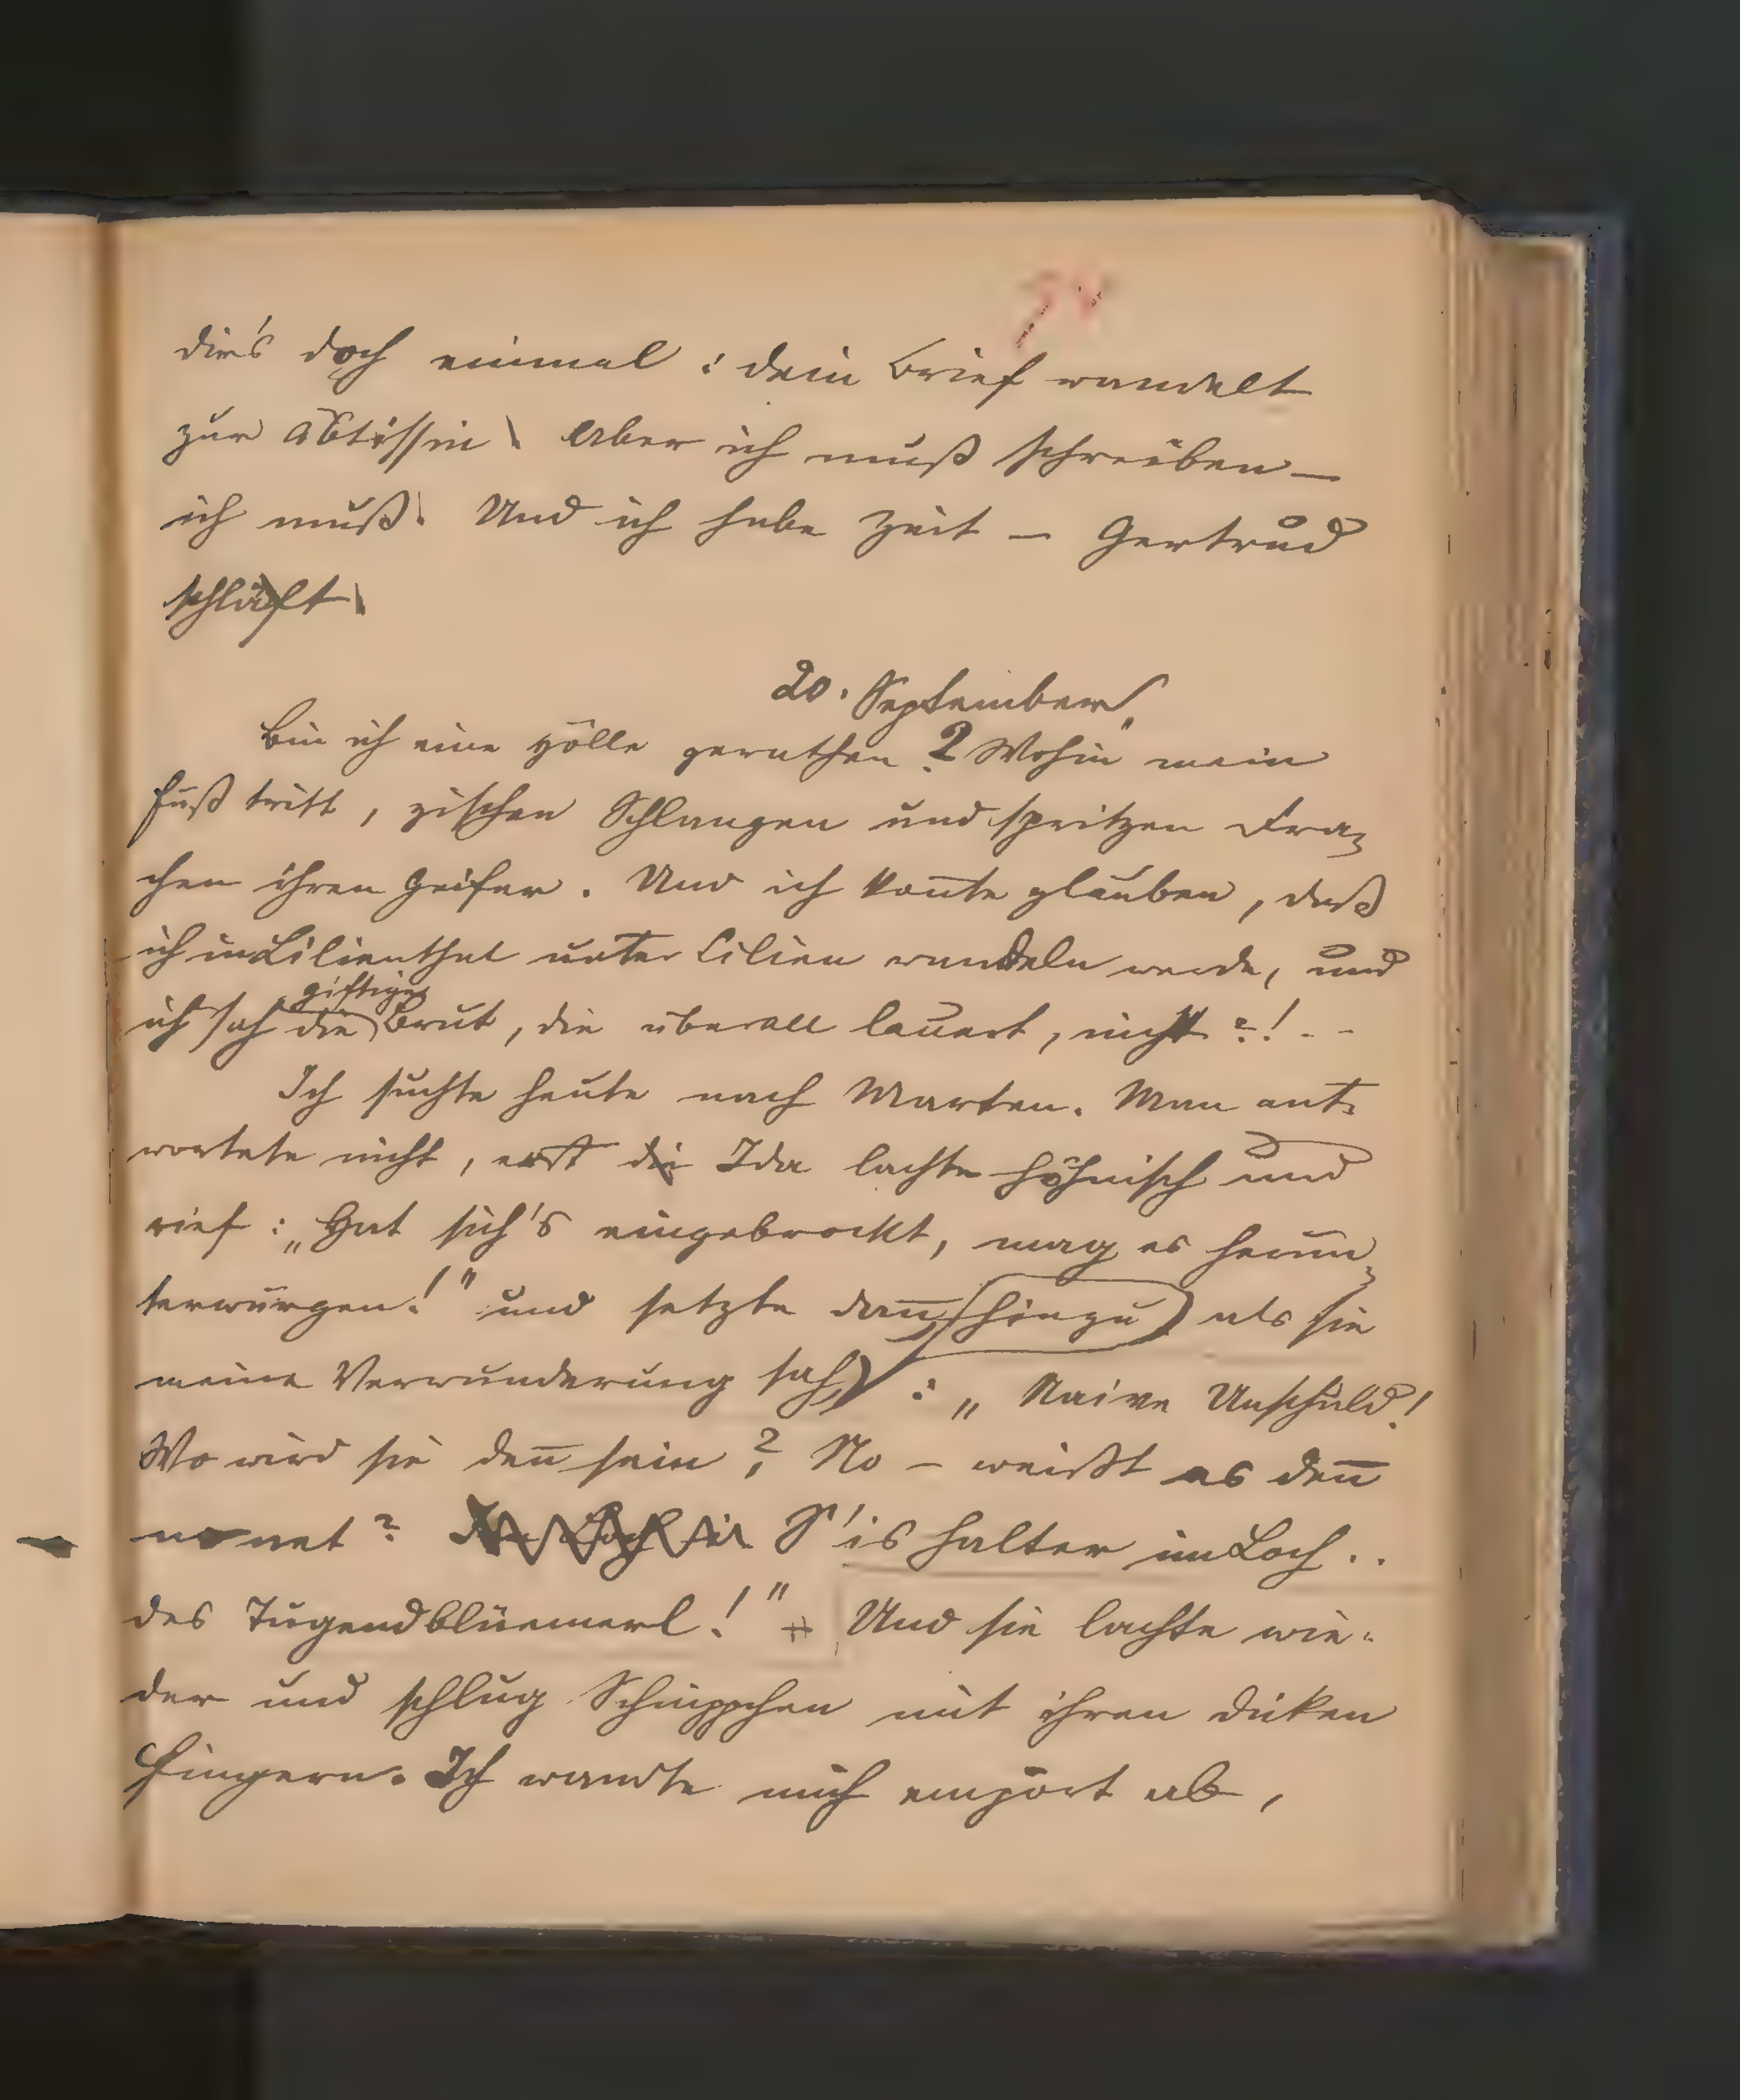 74
dir's doch einmal: dein Brief wandelt
zur Äbtissin! Aber ich muß schreiben –
ich muß. Und ich habe Zeit – Gertrud
schläft!
20. September.
Bin ich eine Hölle gerathen? Wohin mein
Fuß tritt, zischen Schlangen und spritzen Dra-
chen ihren Geifer. Und ich konnte glauben, daß
ich in Lilienthal unter Lilien wandeln werde, und
giftige
ich sah die Brut, die überall lauert, nicht?! - -
Ich suchte heute nach Marten. Man ant-
wortete nicht, erst die Ida lachte höhnisch und
rief: „Hat sich's eingebrockt, mag es herun-
terwürgen!" und setzte dann hinzu als sie
meine Verwunderung sah: „Naive Unschuld!
Wo wird sie denn sein? No – weißt es denn
no net? S'is halter im Loch..
des Tugendblüemerl!" Und sie lachte wie-
der und schlug Schnippchen mit ihren dicken
Fingern. Ich wandte mich empört ab,